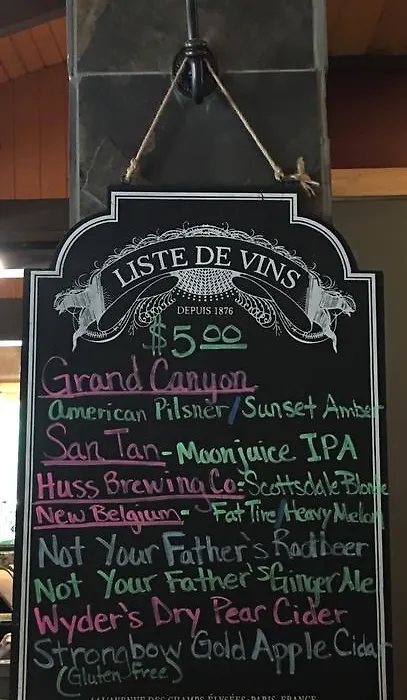 LISTE DE VINS
DEPUIS 1876
$5.00
Grand Canyon
American Pilsner/Sunset Amber
San Tan-Moonjuice IPA
Huss Brewing Co:Scottsdale Blonde
New Belgium- Fat Tire/Heavy Melon
Not Your Father's Rootbeer
Not Your Father's Ginger Ale
Wyder's Dry Pear Cider
Strongbow Gold Apple Cidar
(Gluten Free)
DES CHAMPS ÉLYSÉES-PARIS, FRANCE